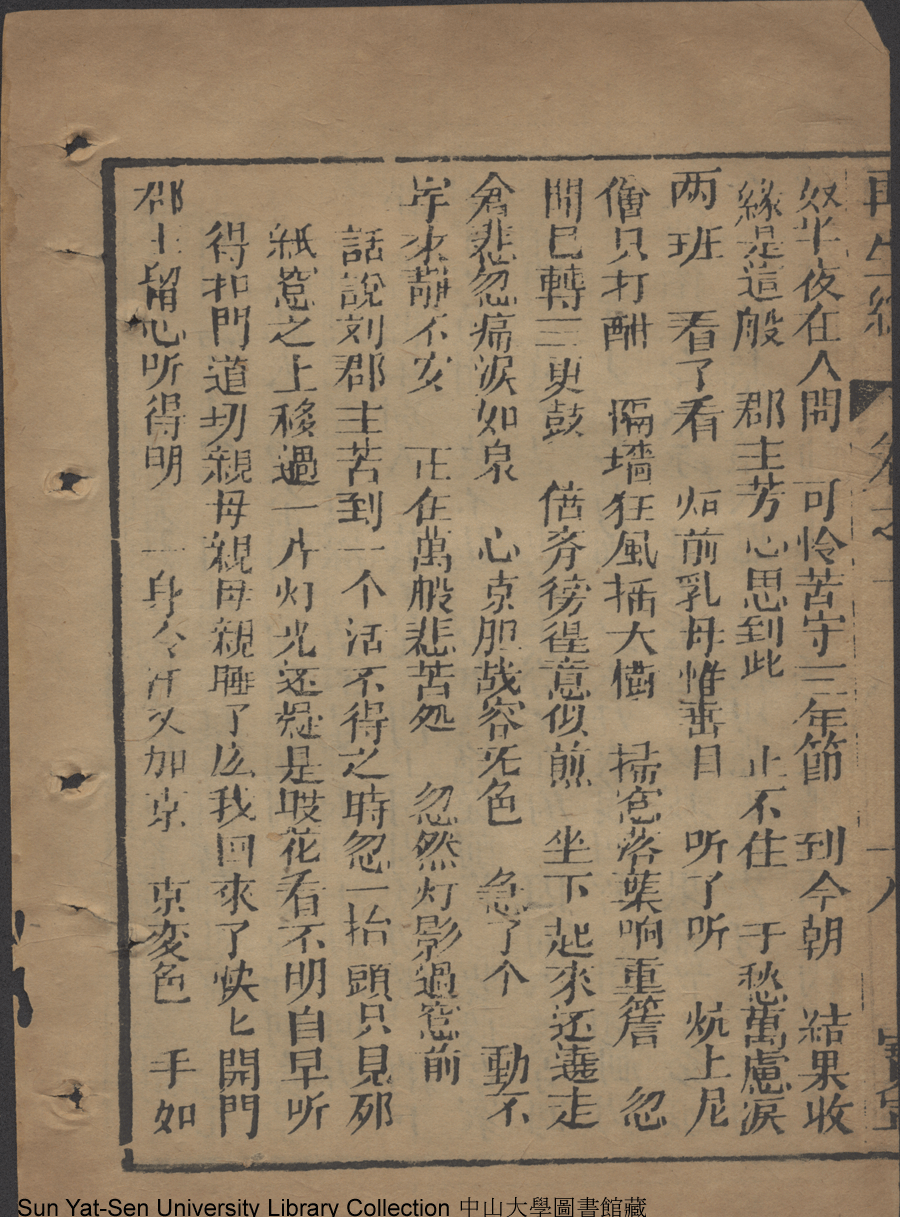 再生緣 卷之 十八 寶
奴半夜在人間 可怜苦守三年節 到今朝 結果收
緣是這般 郡主芳心思到此 止不住 千愁萬慮淚
两班 看了看 炕前乳母惟垂目 听了听 炕上尼
僧只打酣 隔墻狂風搖大樹 掃窓落葉响重簷 忽
聞已轉三更鼓 徬徨意似煎 坐下起來还遶走
倉悲忽痛淚如泉 心京胆战容死色 急了个 動不
是來靜不安 正在萬般悲苦処 忽然灯影過窓前
話說刘郡主苦到一个活不得之時忽一抬頭只見那
紙窓之上移過一片灯光还疑是眼花看不明自早听
得扣門道切親母親母親睡了広我回來了快匕開門
郡主留心听得明 一身冷汗又加京 京変色 手如
Sun Yat-Sen University Library Collection 中山大學圖書館藏